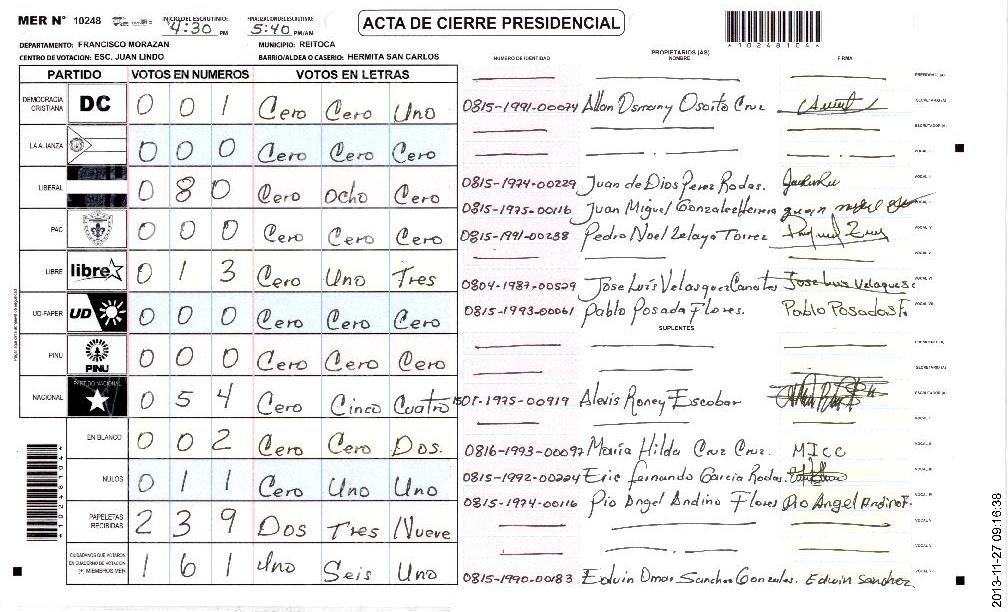 MER N° 10248 INICIO DEL ESCRUTINIO: 4:30 PM FINALIZACION DEL ESCRUTINIO: 5:40 PM/AM ACTA DE CIERRE PRESIDENCIAL
DEPARTAMENTO: FRANCISCO MORAZAN MUNICIPIO: REITOCA
CENTRO DE VOTACION: ESC. JUAN LINDO BARRIO/ALDEA O CASERIO: HERMITA SAN CARLOS
PARTIDO VOTOS EN NUMEROS VOTOS EN LETRAS
DEMOCRACIA CRISTIANA DC 0 0 1 Cero Cero Uno
LA ALIANZA 0 0 0 Cero Cero Cero
LIBERAL 0 8 0 Cero Ocho Cero
PAC 0 0 0 Cero Cero Cero
LIBRE libre 0 1 3 Cero Uno Tres
UD-FAPER UD 0 0 0 Cero Cero Cero
PINU PINU 0 0 0 Cero Cero Cero
NACIONAL PARTIDO NACIONAL 0 5 4 Cero Cinco Cuatro
EN BLANCO 0 0 2 Cero Cero Dos.
NULOS 0 1 1 Cero Uno Uno
PAPELETAS RECIBIDAS 2 3 9 Dos Tres Nueve
CIUDADANOS QUE VOTARON EN CUADERNO DE VOTACION (+) MIEMBROS MER 1 6 1 Uno Seis Uno
1 0 2 4 8 1 0 4
NUMERO DE IDENTIDAD PROPIETARIOS (AS) NOMBRE FIRMA
PRESIDENTE (A)
0815-1991-00074 Allan Osmany Osorto Cruz SECRETARIO (A)
ESCRUTADOR (A)
VOCAL I
0815-1974-00229 Juan de Dios Perez Rodas.
0815-1975-00116 Juan Miguel Gonzalez Herrera
0815-1991-00238 Pedro Noel Zelaya Torrez VOCAL IV
VOCAL V
0804-1987-00529 Jose Luis Velasquez Canales Jose Luis Velasquez VOCAL VI
0815-1993-00061 Pablo Posada Flores. Pablo Posadas F. VOCAL VII
SUPLENTES
PRESIDENTE (A)
SECRETARIO (A)
1501-1975-00919 Alexis Roney Escobar ESCRUTADOR (A)
VOCAL I
0816-1993-00097 Maria Hilda Cruz Cruz. MICC VOCAL II
0815-1992-00224 Eric Fernando Garcia Rodas. VOCAL III
0815-1974-00116 Pio Angel Andino Flores Pio Angel Andino F. VOCAL IV
VOCAL V
VOCAL VI
0815-1990-00183 Edwin Omar Sanchez Gonzales. Edwin Sanchez VOCAL VII
2013-11-27 09:16:38